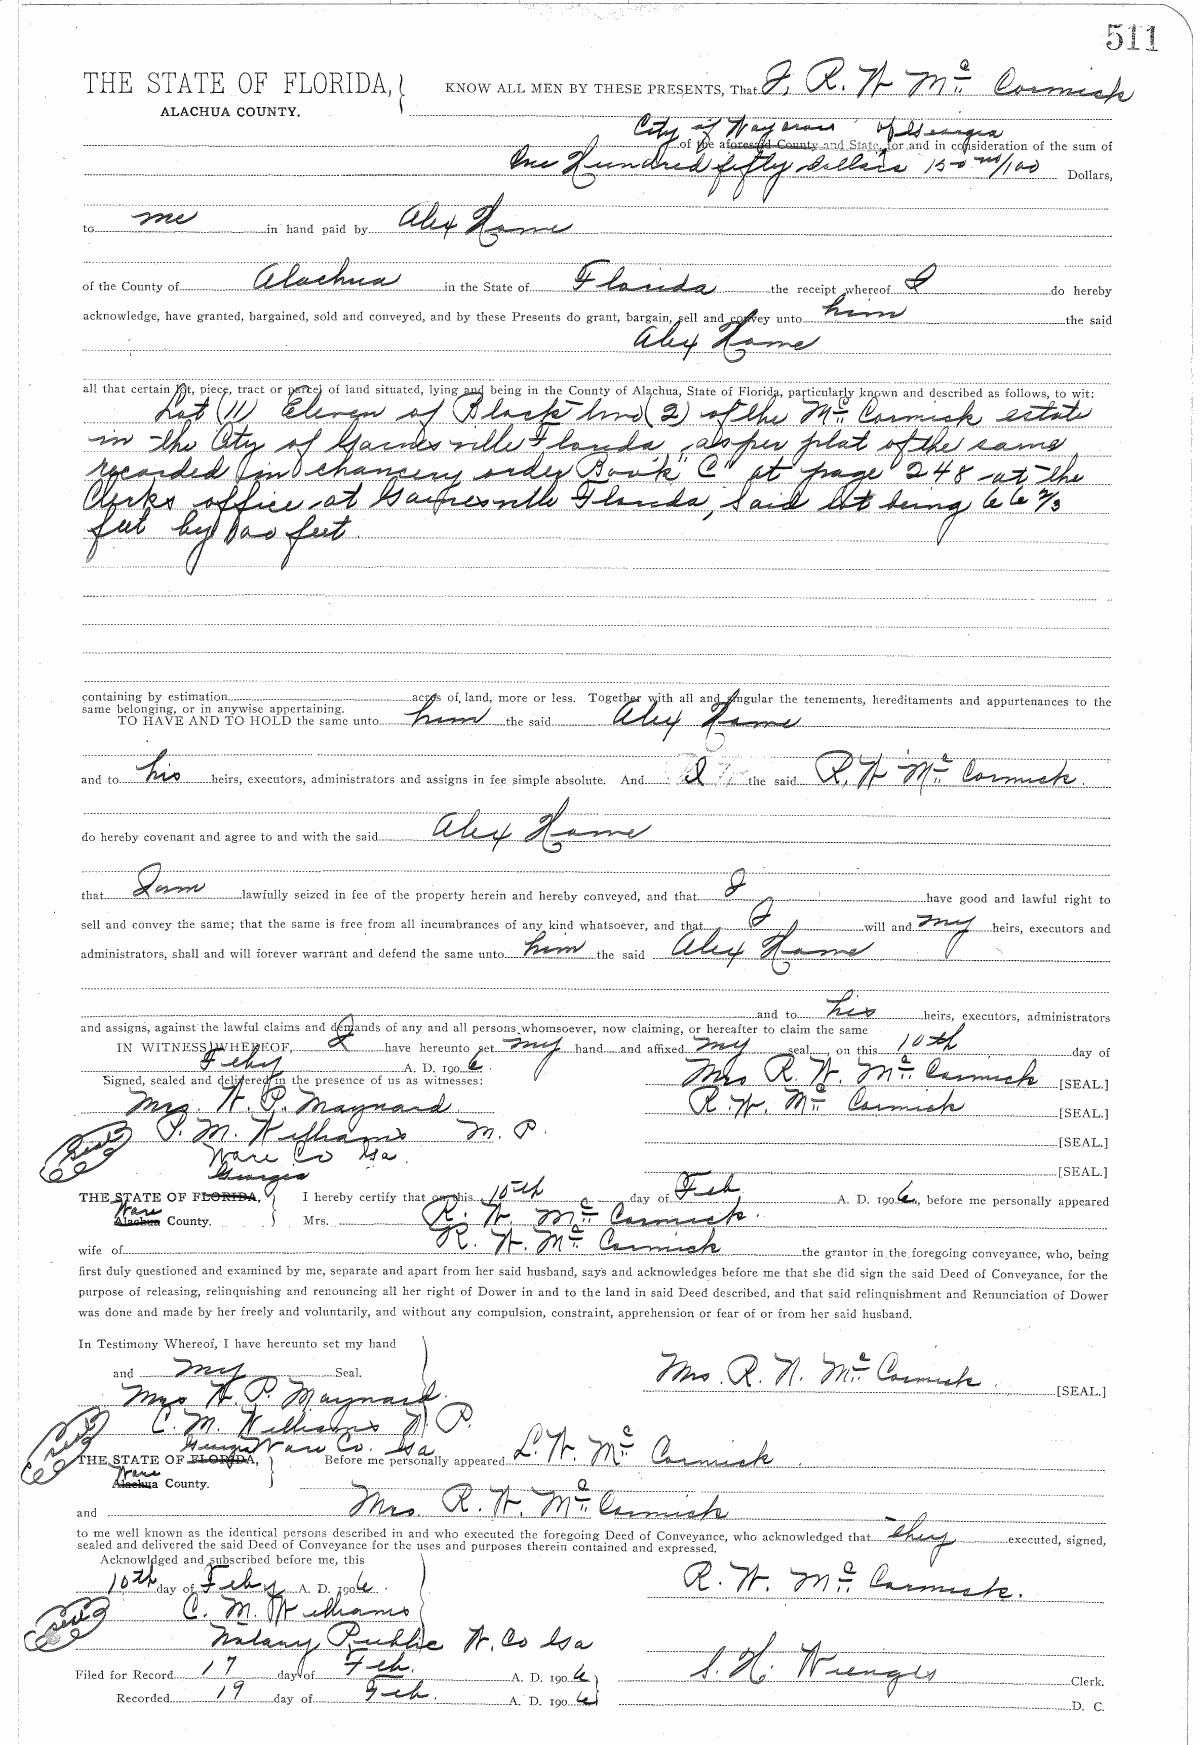 511
THE STATE OF FLORIDA, KNOW ALL MEN BY THESE PRESENTS, That I, R. W Mc Cormick
ALACHUA COUNTY.
City of Waycross of Georgia
of the aforesaid County and State, for and in consideration of the sum of
One Hundred fifty dollars 150 no/100 Dollars,
to me in hand paid by Alex Hame
of the County of Alachua in the State of Florida the receipt whereof I do hereby
acknowledge, have granted, bargained, sold and conveyed, and by these Presents do grant, bargain, sell and convey unto him the said
Alex Hame
all that certain lot, piece, tract or parcel of land situated, lying and being in the County of Alachua, State of Florida, particularly known and described as follows, to wit:
Lot (11) Eleven of Block two (2) of the Mc Cormick estate
in the City of Gainesville Florida, as per plat of the same
recorded in chancery order Book "C" at page 248 at the
Clerks office at Gainesville Florida, Said lot being 66 2/3
feet by 100 feet.
containing by estimation acres of land, more or less. Together with all and singular the tenements, hereditaments and appurtenances to the
same belonging, or in anywise appertaining.
TO HAVE AND TO HOLD the same unto him the said Alex Hame
and to his heirs, executors, administrators and assigns in fee simple absolute. And I the said R. W Mc Cormick.
do hereby covenant and agree to and with the said Alex Hame
that I am lawfully seized in fee of the property herein and hereby conveyed, and that I have good and lawful right to
sell and convey the same; that the same is free from all incumbrances of any kind whatsoever, and that I will and my heirs, executors and
administrators, shall and will forever warrant and defend the same unto him the said Alex Hame
and to his heirs, executors, administrators
and assigns, against the lawful claims and demands of any and all persons whomsoever, now claiming, or hereafter to claim the same
IN WITNESS WHEREOF, I have hereunto set my hand and affixed my seal on this 10th day of
Feby A. D. 1906. Mrs R. W. Mc Cormick [SEAL.]
Signed, sealed and delivered in the presence of us as witnesses:
Mrs. W. P. Maynard. R. W. Mc Cormick [SEAL.]
C. M. Williams N. P. [SEAL.]
Seal Ware Co Ga. [SEAL.]
Georgia
THE STATE OF FLORIDA, I hereby certify that on this 10th day of Feb A. D. 1906, before me personally appeared
Ware
Alachua County. Mrs. R. W. Mc Cormick.
wife of R. W. Mc Cormick the grantor in the foregoing conveyance, who, being
first duly questioned and examined by me, separate and apart from her said husband, says and acknowledges before me that she did sign the said Deed of Conveyance, for the
purpose of releasing, relinquishing and renouncing all her right of Dower in and to the land in said Deed described, and that said relinquishment and Renunciation of Dower
was done and made by her freely and voluntarily, and without any compulsion, constraint, apprehension or fear of or from her said husband.
In Testimony Whereof, I have hereunto set my hand
and my Seal. Mrs. R. W. Mc Cormick. [SEAL.]
Mrs W. P. Maynard.
C. M. Williams N. P.
Seal Georgia Ware Co. Ga
THE STATE OF FLORIDA, Before me personally appeared L. W. Mc Cormick.
Ware
Alachua County.
and Mrs. R. W. Mc Cormick
to me well known as the identical persons described in and who executed the foregoing Deed of Conveyance, who acknowledged that they executed, signed,
sealed and delivered the said Deed of Conveyance for the uses and purposes therein contained and expressed.
Acknowldged and subscribed before me, this
10th day of Feby A. D. 1906. R. W. Mc Cormick.
C. M. Williams
Seal Notary Public W. Co Ga
Filed for Record 17 day of Feb. A. D. 1906 S. H. Wienges Clerk.
Recorded 19 day of Feb. A. D. 1906 D. C.